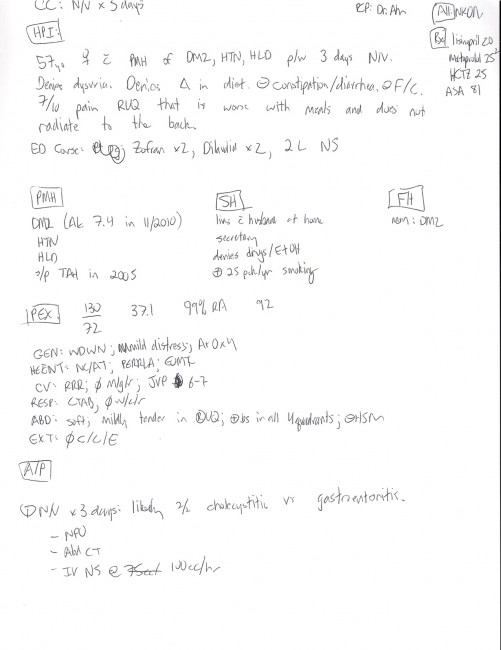 CC: N/V x 3 days
PCP: Dr. Ahn
All: NKDA
HPI:
Rx lisinopril 20
metoprolol 25
HCTZ 25
ASA 81
57yo ♀ c̄ PMH of DM2, HTN, HLD p/w 3 days N/V.
Denies dysuria. Denies Δ in diet. ⊖ constipation/diarrhea. ⊖ F/C.
7/10 pain RUQ that is worse with meals and does not
radiate to the back.
ED Course: Zofran x2, Dilaudid x2, 2 L NS
PMH
DM2 (A1c 7.4 in 11/2010)
HTN
HLD
s/p TAH in 2005
SH
lives c̄ husband at home
secretary
denies drugs/EtOH
⊕ 25 pck/yr smoking
FH
mom: DM2
PEX 130/72 37.1 99% RA 92
GEN: WDWN; mild distress; A+Ox4
HEENT: NC/AT; PERRLA; EOMI
CV: RRR; ∅ m/g/r; JVP 6-7
RESP: CTAB, ∅ w/c/r
ABD: soft, mildly tender in RUQ; ⊕bs in all 4 quadrants; ⊖HSM
EXT: ∅ C/C/E
A/P
① N/V x 3 days: likely 2/2 cholecystitis vs gastroenteritis.
- NPO
- Abd CT
- IV NS @ 75cc/ 100cc/hr